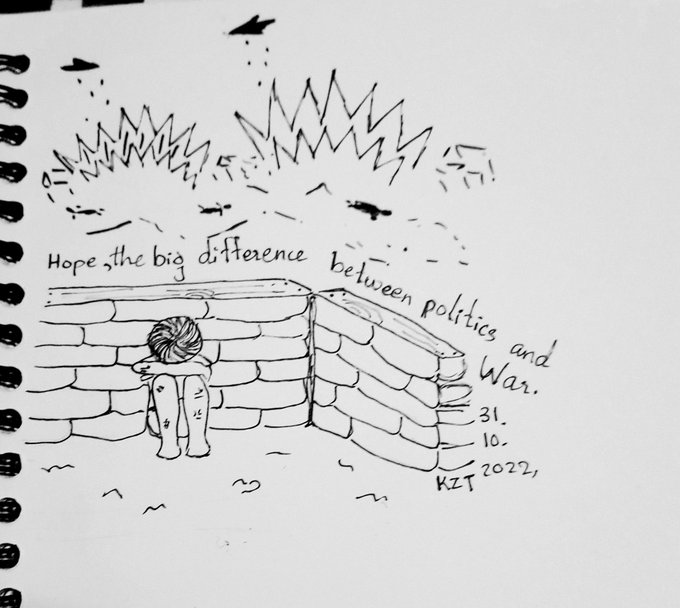 Hope, the big difference between politics and War.
31.
10.
2022,
KZT